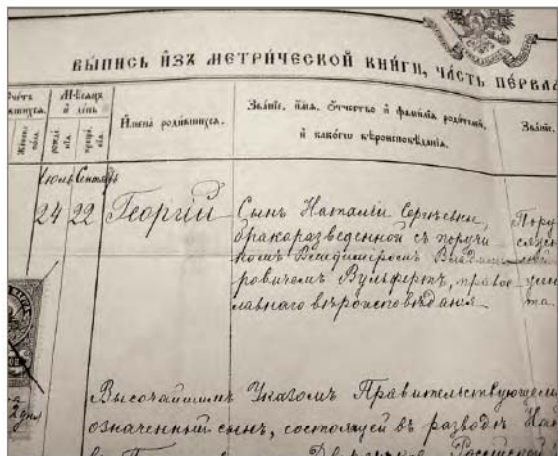 ВЫПИСЬ ИЗЪ МЕТРИЧЕСКОЙ КНИГИ, ЧАСТЬ ПЕРВА
Счетъ
Женска пола.
Мѣсяцъ и день
рожденія.
крещенія.
Имена родившихся.
Званіе, имя, отчество и фамилія родителей,
и какого вѣроисповѣданія.
Званіе,
Іюль Сентябрь
24 22 Георгій
Сынъ Наталіи Сергѣевны,
бракоразведенной съ поручи
комъ Владиміромъ Влади
ровичемъ Вульфертъ, правос
лавнаго вѣроисповѣданія
Пору
та.
Высочайшимъ Указомъ Правительствующем
означенный сынъ, состоящей въ разводѣ Нат